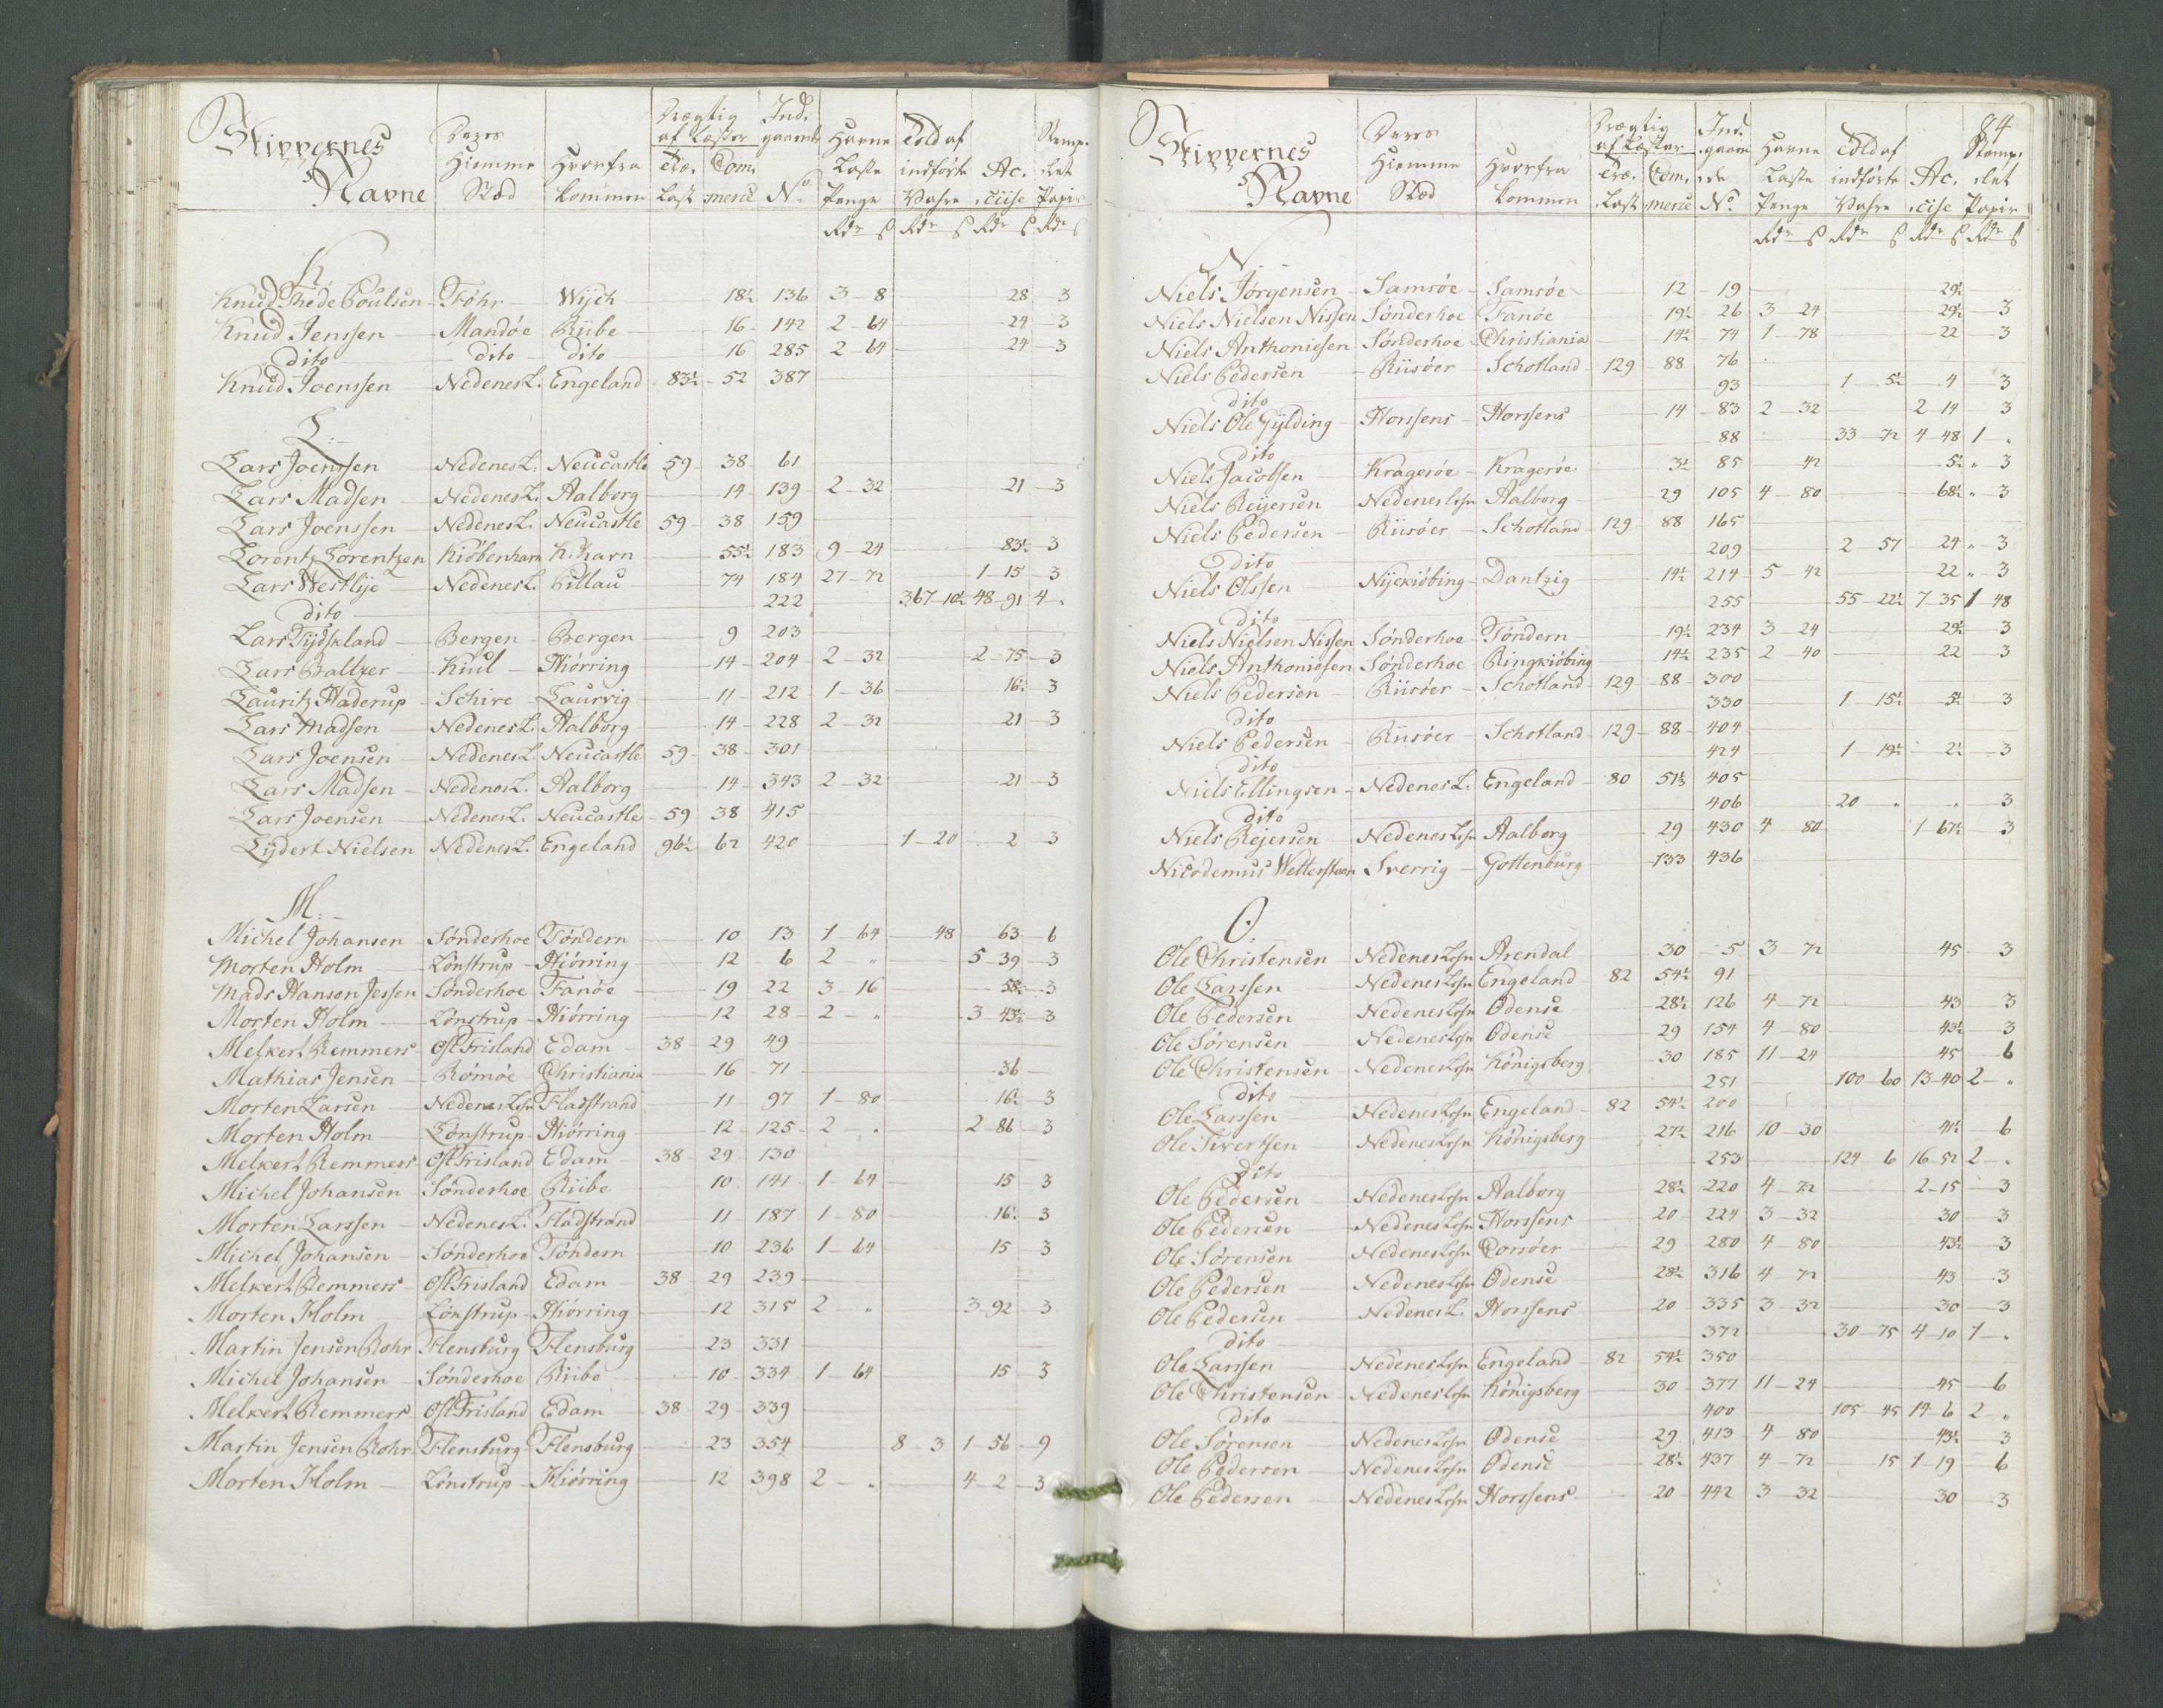 Skippernes Navne | Deres Hiemme Stæd | Hvorfra kommen | Drægtig af Læster Træ. Last | Com. merce | Ind. gaaende No. | Havne Laste Penge | Told af indførte Vahre | Ac. ciise | Stemp. let Papir
Rdr ß Rdr ß Rdr ß Rdr ß
K.
Knud Thede Poulsen Föhr Wijch 18½ 136 3 - 8 28 3
Knud Jenssen Mandöe Riibe 16 142 2 - 64 24 3
dito dito dito 16 285 2 - 64 24 3
Knud Joenssen Nedenes L. Engeland 83½ 52 387
L.
Lars Joenssen Nedenes L. Neucastle 59 38 61
Lars Madsen Nedenes L. Aalborg 14 139 2 - 32 21 3
Lars Joenssen Nedenes L. Neucastle 59 38 159
Lorentz Lorentzen Kiöbenhavn K:havn 55½ 183 9 - 24 83½ 3
Lars Westlije Nedenes L. Pillau 74 184 27 - 72 1 - 15 3
dito 222 367 - 10½ 48 - 91 4 "
Lars Tijdskland Bergen Bergen 9 203
Lars Baltzer Kiul Hiörring 14 204 2 - 32 2 - 75 3
Lauritz Haderup Schive Laurvig 11 212 1 - 36 16½ 3
Lars Madsen Nedenes L. Aalborg 14 228 2 - 32 21 3
Lars Joensen Nedenes L. Neucastle 59 38 301
Lars Madsen Nedenes L. Aalborg 14 343 2 - 32 21 3
Lars Joensen Nedenes L. Neucastle 59 38 415
Lijdert Nielsen Nedenes L. Engeland 96½ 62 420 1 - 20 2 3
M.
Michel Johansen Sönderhoe Töndern 10 13 1 - 64 48 63 6
Morten Holm Lönstrup Hiörring 12 6 2 - " 5 39 3
Mads Hansen Jessen Sönderhoe Fanöe 19 22 3 - 16 58½ 3
Morten Holm Lönstrup Hiörring 12 28 2 - " 3 43½ 3
Melkert Remmers Ost Frisland Edam 38 29 49
Mathias Jensen Römöe Christiania 16 71 36
Morten Larsen Nedenes Lehn Fladstrand 11 97 1 - 80 16½ 3
Morten Holm Lönstrup Hiörring 12 125 2 - " 2 86 3
Melkert Remmers Ost Frisland Edam 38 29 130
Michel Johansen Sönderhoe Riibe 10 141 1 - 64 15 3
Morten Larssen Nedenes L. Fladstrand 11 187 1 - 80 16½ 3
Michel Johansen Sönderhoe Töndern 10 236 1 - 64 15 3
Melkert Remmers Ost Frisland Edam 38 29 239
Morten Holm Lönstrup Hiörring 12 315 2 " 3 - 92 3
Martin Jensen Rohr Flensburg Flensburg 23 331
Michel Johansen Sönderhoe Riibe 10 334 1 - 64 15 3
Melkert Remmers Ost Frisland Edam 38 29 339
Martin Jensen Rohr Flensburg Flensburg 23 354 8 - 3 1 - 56 9
Morten Holm Lönstrup Hiörring 12 398 2 - " 4 - 2 3
84
Skippernes Navne | Deres Hiemme Stæd | Hvorfra kommen | Drægtig af Læster Træ. Last | Com. merce | Ind. gaaende No. | Havne Laste Penge | Told af indförte Vahre | Ac. cise | Stemp. let Papir
Rdr ß Rdr ß Rdr ß Rdr ß
N.
Niels Jörgensen Samsöe Samsöe 12 19 29½
Niels Nielsen Nissen Sönderhoe Fanöe 19½ 26 3 - 24 29½ 3
Niels Anthoniesen Sönderhoe Christiania 14½ 74 1 - 78 22 3
Niels Pedersen Riisöer Schotland 129 88 76
dito 93 1 5½ 4 3
Niels Ole Gylding Horssens Horssens 14 83 2 - 32 2 - 14 3
dito 88 33 - 72 4 - 48 1 "
Niels Jacobsen Kragerøe Kragerøe 3½ 85 42 5½ " 3
Niels Reijersen Nedenes Lehn Aalborg 29 105 4 - 80 68½ " 3
Niels Pedersen Riisöer Schotland 129 88 165
Dito 209 2 57 24 " 3
Niels Olssen Nijekiöbing Dantzig 14½ 214 5 - 42 22 " 3
dito 255 55 - 22½ 7 - 35 1 48
Niels Nielsen Nissen Sönderhoe Töndern 19½ 234 3 - 24 29½ 3
Niels Anthoniesen Sönderhoe Ringkiöbing 14½ 235 2 - 40 22 3
Niels Pedersen Riisöer Schotland 129 88 300
dito 330 1 15½ 5½ 3
Niels Pedersen Riisöer Schotland 129 88 404
dito 424 1 19½ 2½ 3
Niels Ellingsen Nedenes L. Engeland 80 51½ 405
dito 406 20 " " 3
Niels Rejersen Nedenes Lehn Aalborg 29 430 4 - 80 1 67½ 3
Nicodemus Wetterstrøm Sverrig Gottenburg 133 436
O.
Ole Christensen Nedenes Lehn Arendal 30 5 3 - 72 45 3
Ole Larssen Nedenes Lehn Engeland 82 54½ 91
Ole Pedersen Nedenes Lehn Odense 28½ 126 4 - 72 43 3
Ole Sörensen Nedenes Lehn Odense 29 154 4 - 80 43½ 3
Ole Christensen Nedenes Lehn Königsberg 30 185 11 - 24 45 6
dito 251 100 60 13 - 40 2 - "
Ole Larssen Nedenes Lehn Engeland 82 54½ 200
Ole Tivertsen Nedenes Lehn Königsberg 27½ 216 10 - 30 41½ 6
Dito 253 124 6 16 - 52 2 - "
Ole Pedersen Nedenes Lehn Aalborg 28½ 220 4 - 72 2 - 15 3
Ole Pedersen Nedenes Lehn Horssens 20 224 3 - 32 30 3
Ole Sörensen Nedenes Lehn Corsöer 29 280 4 - 80 43½ 3
Ole Pedersen Nedenes Lehn Odense 28½ 316 4 - 72 43 3
Ole Pedersen Nedenes L. Horssens 20 335 3 - 32 30 3
dito 372 30 - 75 4 - 10 1 - "
Ole Larssen Nedenes Lehn Engeland 82 54½ 350
Ole Christensen Nedenes Lehn Königsberg 30 377 11 - 24 45 6
dito 400 105 45 14 - 6 2 - "
Ole Sörensen Nedenes Lehn Odense 29 413 4 - 80 43½ 3
Ole Pedersen Nedenes Lehn Odense 28½ 437 4 - 72 15 1 - 19 6
Ole Pedersen Nedenes Lehn Horssens 20 442 3 - 32 30 3